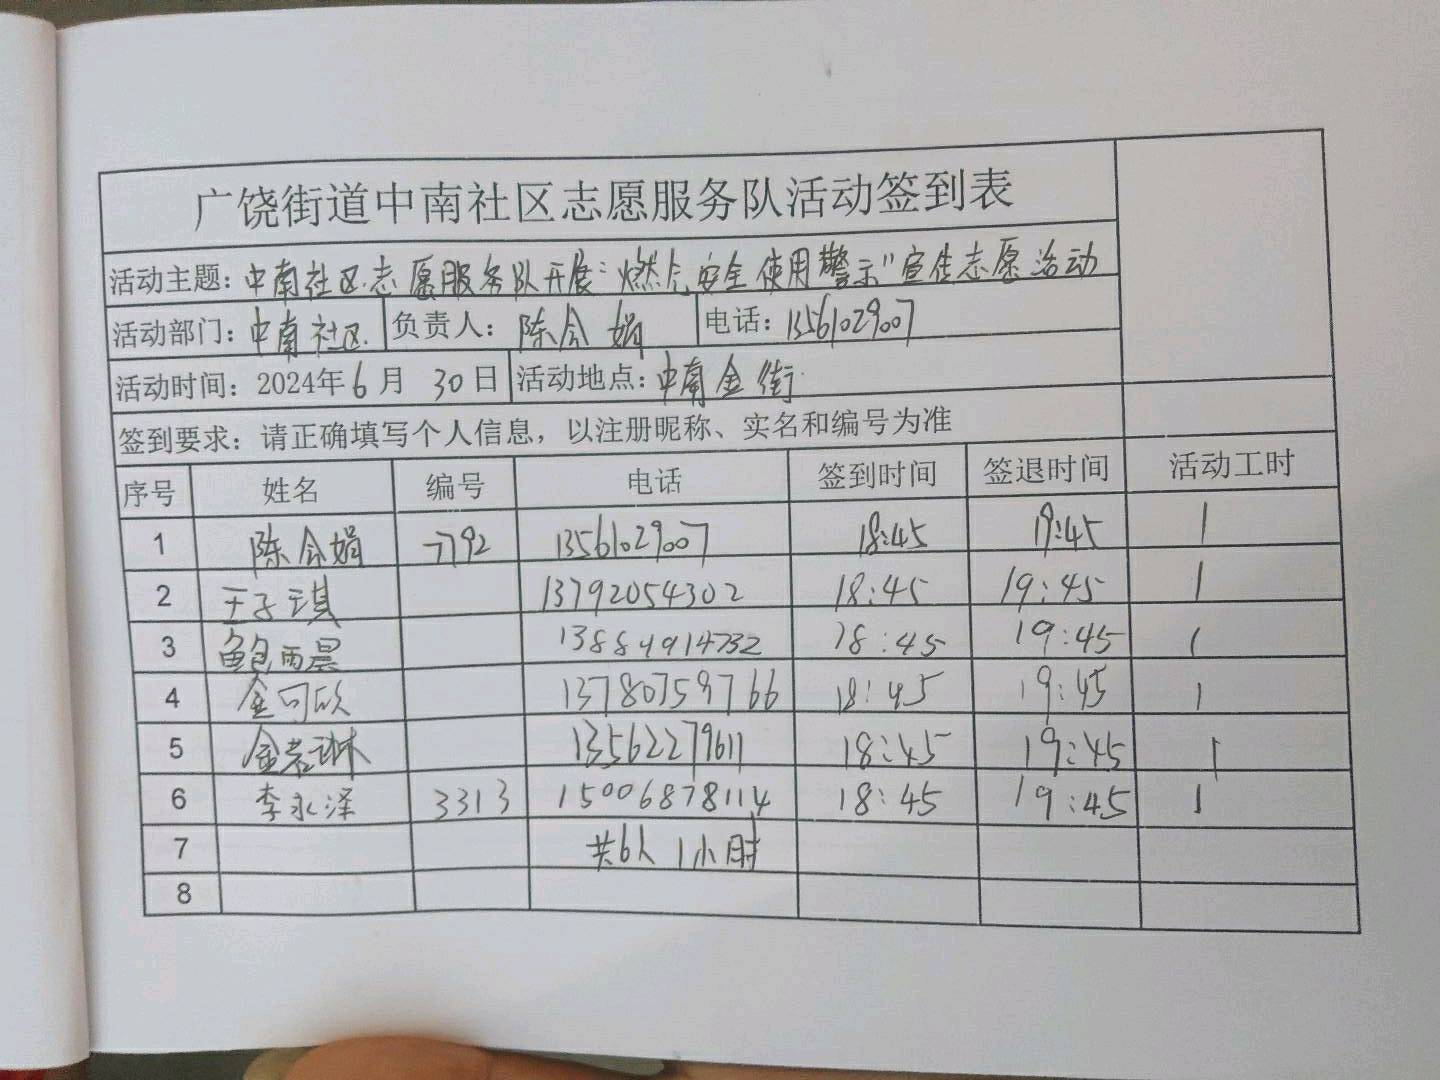 广饶街道中南社区志愿服务队活动签到表
活动主题：中南社区志愿服务队开展“燃气安全使用警示”宣传志愿活动
活动部门：中南社区 负责人：陈会娟 电话：13561029007
活动时间：2024年6月30日 活动地点：中南金街
签到要求：请正确填写个人信息，以注册昵称、实名和编号为准
序号 姓名 编号 电话 签到时间 签退时间 活动工时
1 陈会娟 7792 13561029007 18:45 19:45 1
2 王子琪 13792054302 18:45 19:45 1
3 鲍雨晨 13884914732 18:45 19:45 1
4 金可欣 13780759766 18:45 19:45 1
5 金若琳 13562279611 18:45 19:45 1
6 李永泽 3313 15006878114 18:45 19:45 1
7 共6人 1小时
8